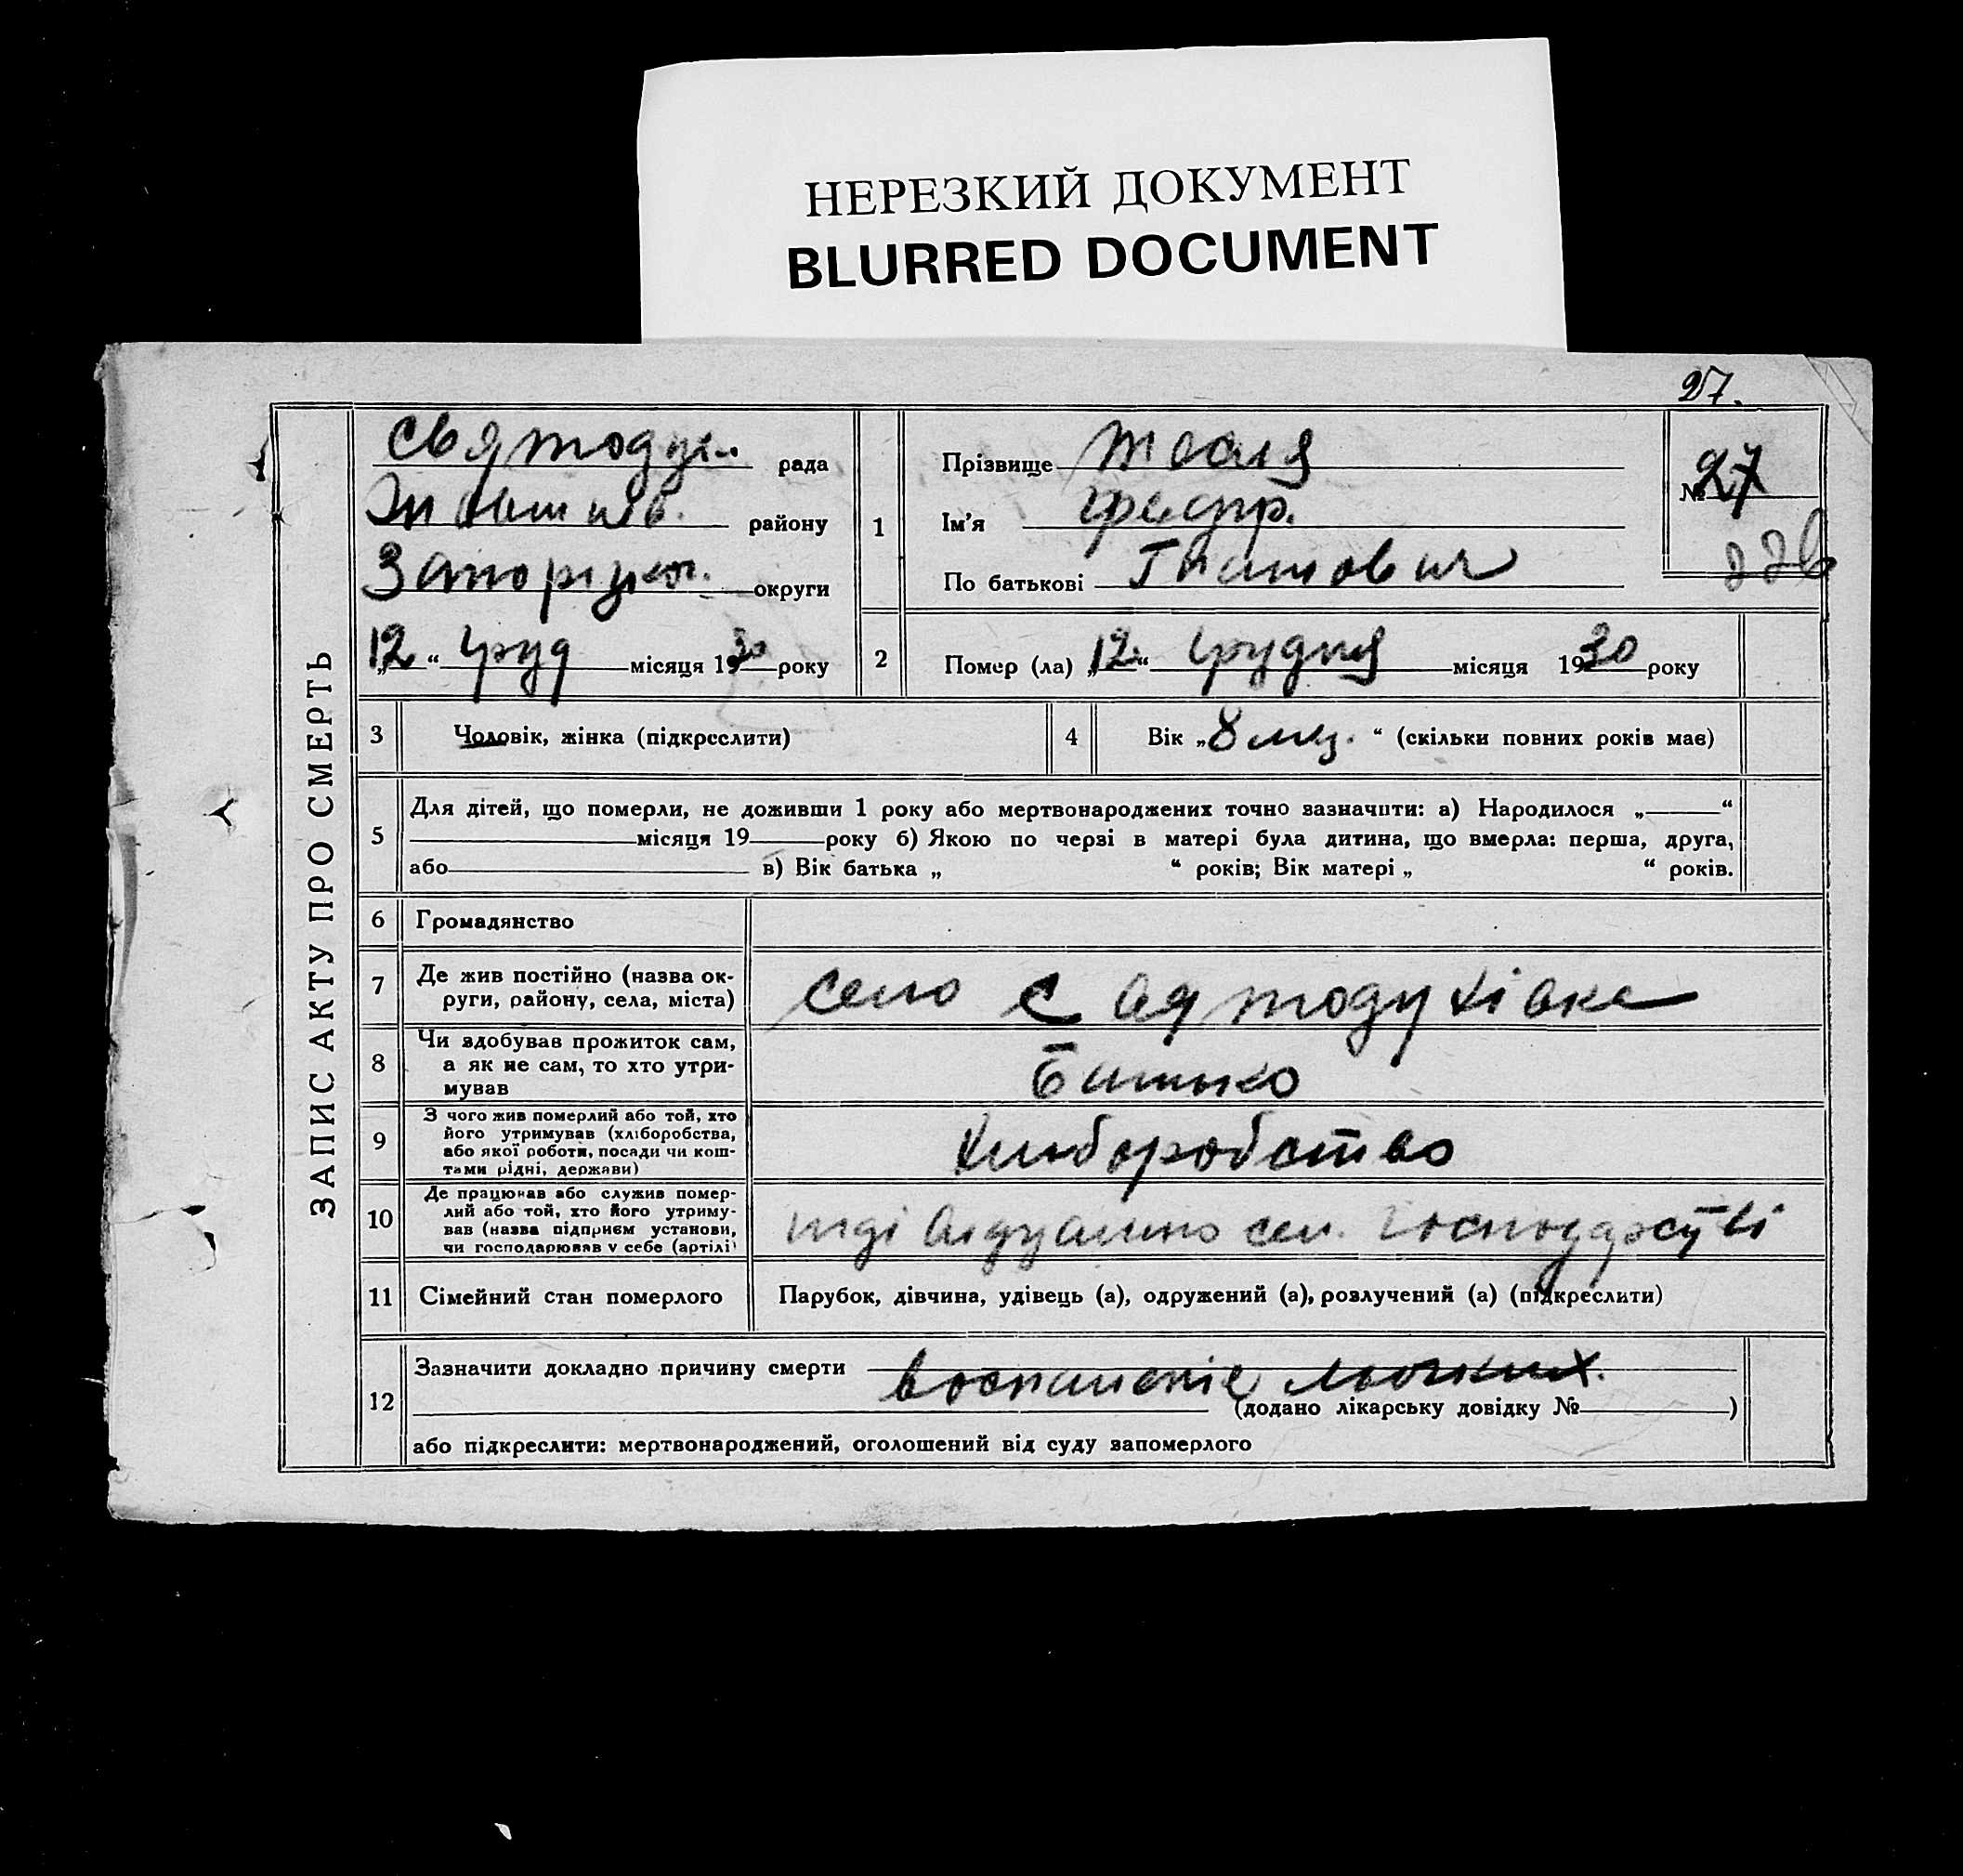 НЕРЕЗКИЙ ДОКУМЕНТ
BLURRED DOCUMENT
27.
ЗАПИС АКТУ ПРО СМЕРТЬ
Святодух. рада
району
округи
„12“ груд місяця 1930 року
1
Прізвище
Ім’я
По батькові Гнатович
№ 27
226
2
Помер (ла) „12“ грудня місяця 1930 року
3
Чоловік, жінка (підкреслити)
4
Вік „8 міс.“ (скільки повних років має)
5
Для дітей, що померли, не доживши 1 року або мертвонароджених точно зазначити: а) Народилося „ “
місяця 19 року б) Якою по черзі в матері була дитина, що вмерла: перша, друга,
або в) Вік батька „ “ років; Вік матері „ “ років.
6
Громадянство
7
Де жив постійно (назва ок-
руги, району, села, міста)
село Святодухівка
8
Чи здобував прожиток сам,
а як не сам, то хто утри-
мував
Батько
9
З чого жив померлий або той, хто
його утримував (хліборобства,
або якої роботи, посади чи кош-
тами рідні, держави)
Хліборобство
10
Де працював або служив помер-
лий або той, хто його утриму-
вав (назва підприєм установи,
чи господарював у себе (артілі)
сел. господарстві
11
Сімейний стан померлого
Парубок, дівчина, удівець (а), одружений (а), розлучений (а) (підкреслити)
12
Зазначити докладно причину смерти воспаленіє льогких.
(додано лікарську довідку № )
або підкреслити: мертвонароджений, оголошений від суду запомерлого